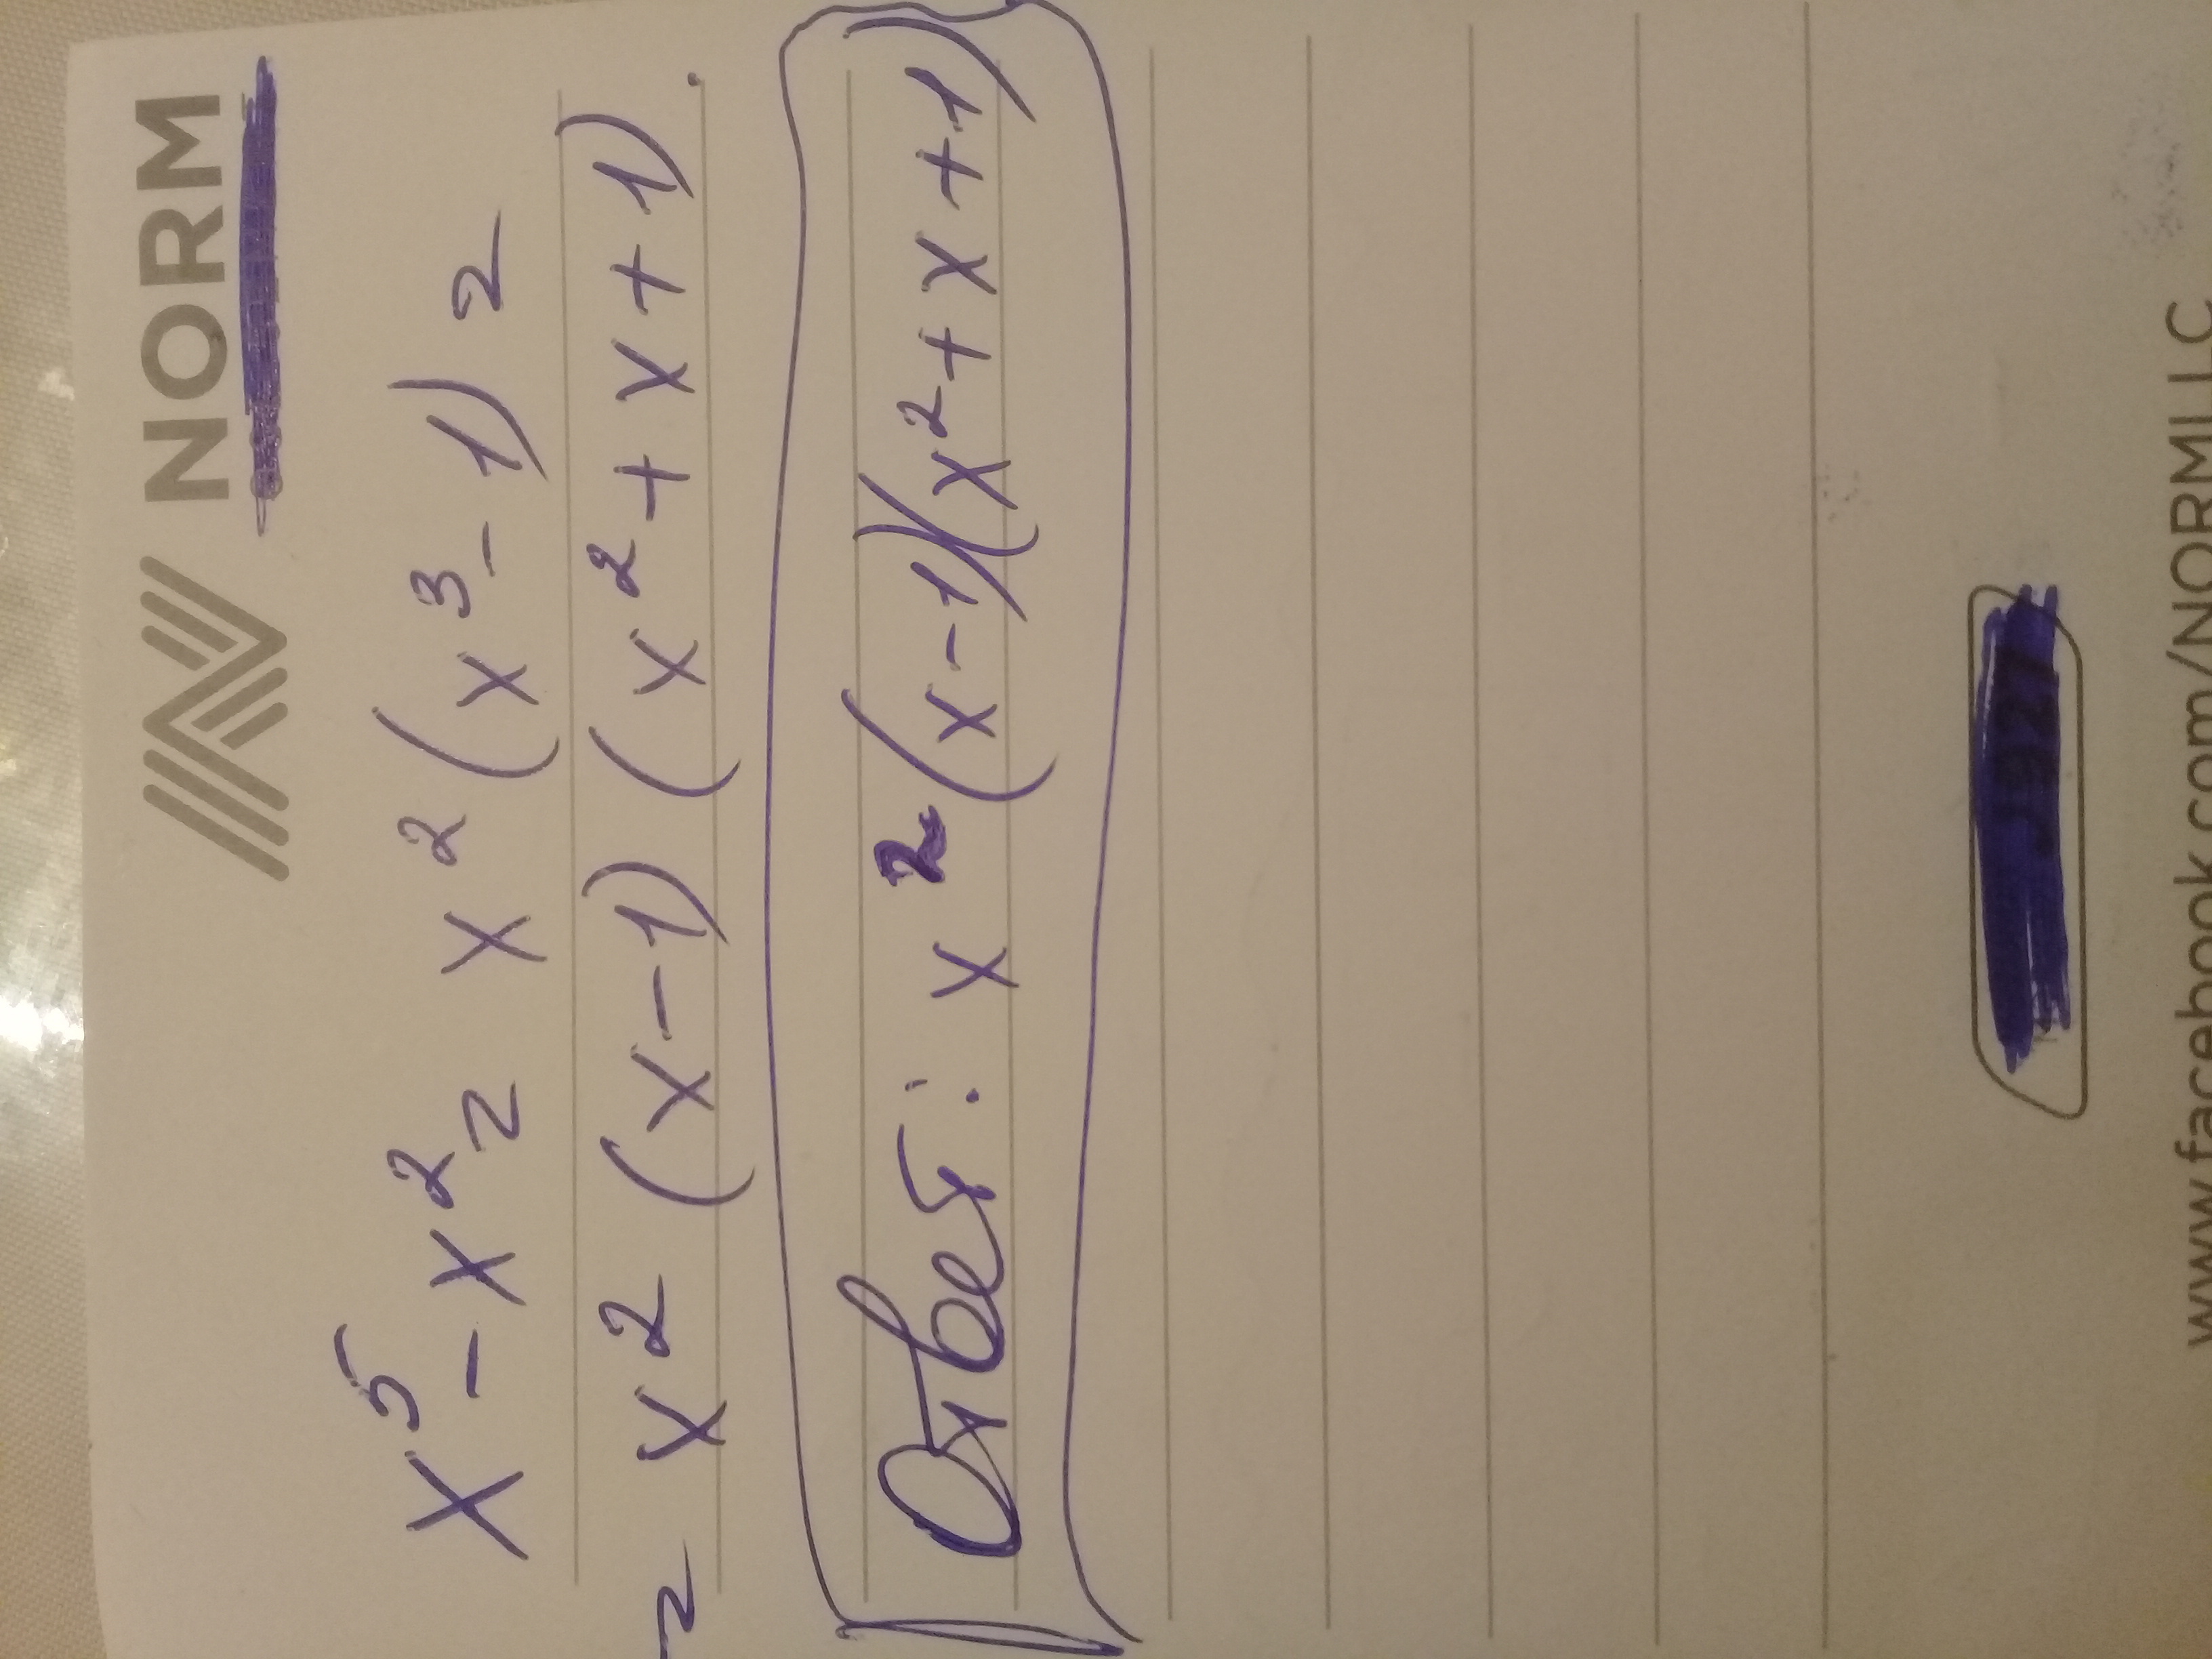 NORM
x⁵ - x² = x² (x³ - 1) =
= x² (x - 1) (x² + x + 1).
Ответ: x² (x - 1)(x² + x + 1)
www.facebook.com/NORMLLC